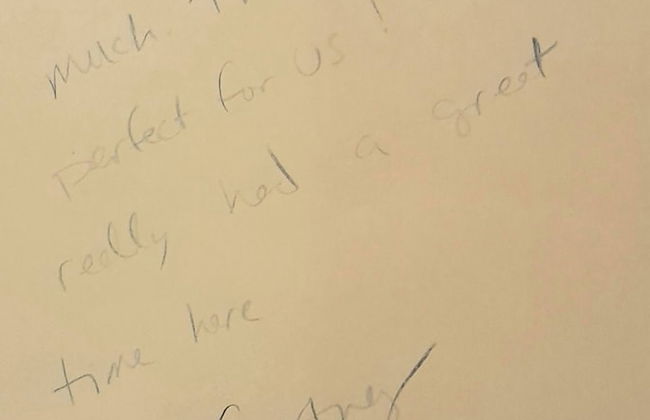 much.
perfect for us!
really had a great
time here